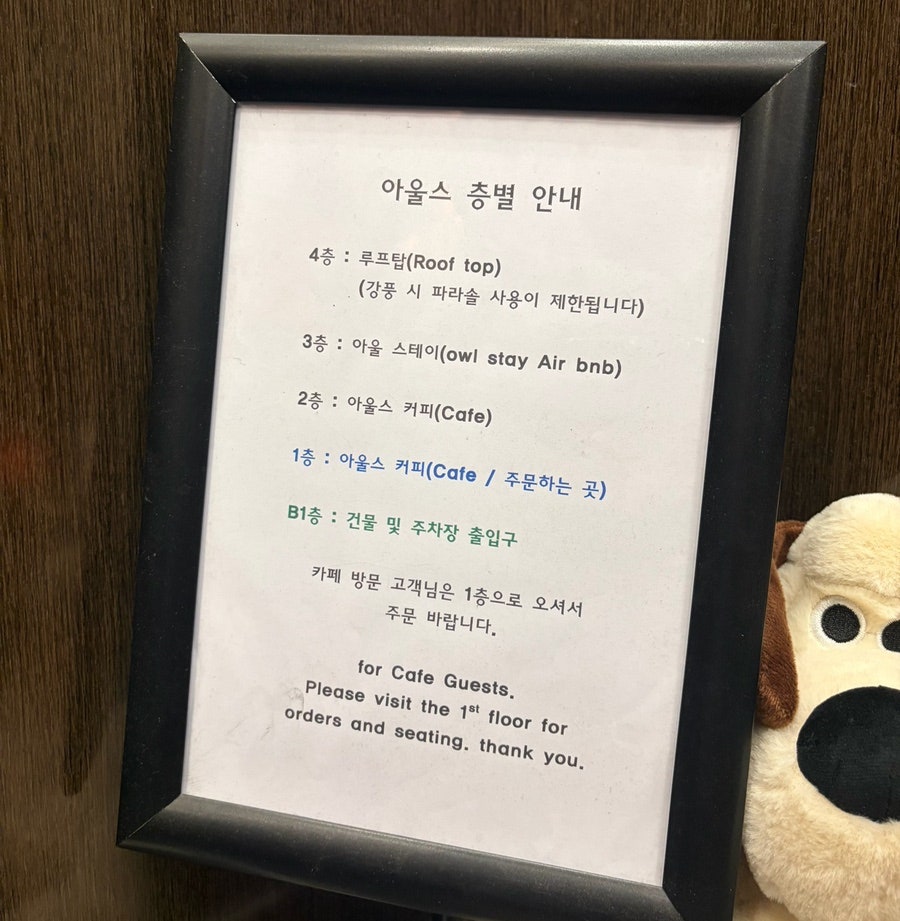 아울스 층별 안내
4층 : 루프탑(Roof top)
(강풍 시 파라솔 사용이 제한됩니다)
3층 : 아울 스테이(owl stay Air bnb)
2층 : 아울스 커피(Cafe)
1층 : 아울스 커피(Cafe / 주문하는 곳)
B1층 : 건물 및 주차장 출입구
카페 방문 고객님은 1층으로 오셔서
주문 바랍니다.
for Cafe Guests.
Please visit the 1st floor for
orders and seating. thank you.